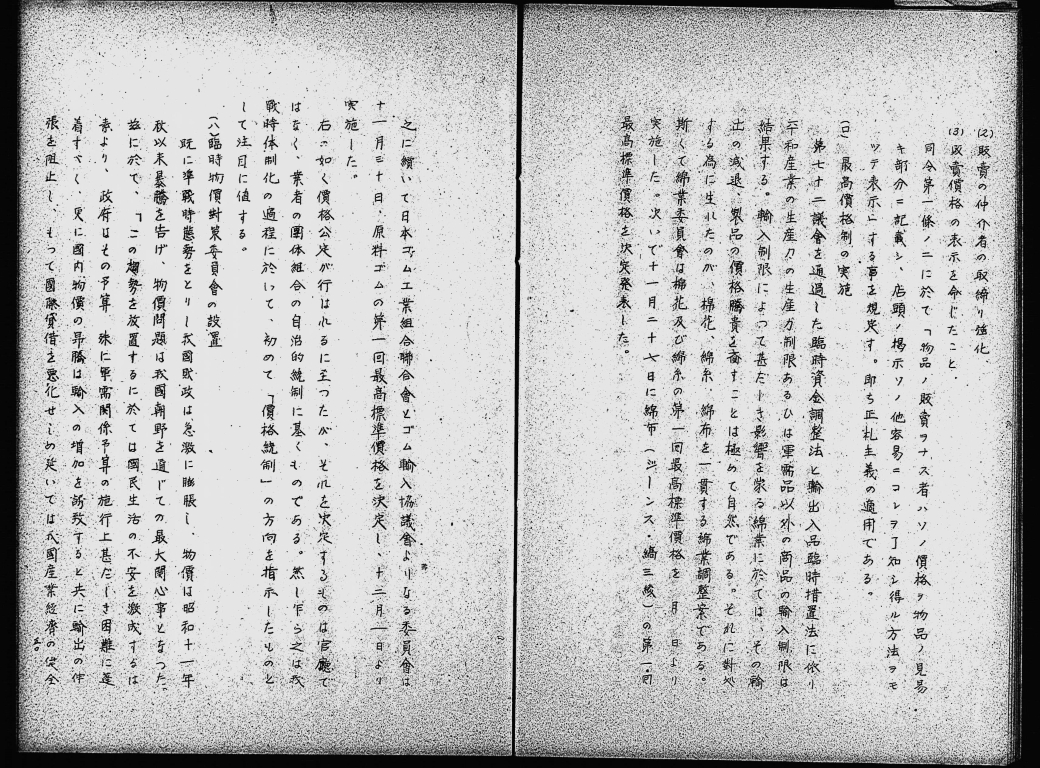 (2) 販賣の仲介者の取締り強化、
(3) 販賣價格の表示を命じたこと、
同令第一條ノ二に於て「物品ノ販賣ヲナス者ハソノ價格ヲ物品ノ見易
キ部分ニ記載シ、店頭ノ掲示ソノ他容易ニコレヲ了知シ得ル方法ヲモ
ツテ表示」する事を規定す。即ち正札主義の適用である。
(ロ) 最高價格制の実施
第七十二議會を通過した臨時資金調整法と輸出入品臨時措置法に依り
平和産業の生産力の生産力制限あるひは軍需品以外の商品の輸入制限は
結果する。輸入制限によつて甚だしき影響を蒙る綿業に於ては、その輸
出の減退、製品の價格騰貴を齎すことは極めて自然である。それに對処
する為に生れたのが、棉花、綿糸、綿布を一貫する綿業調整案である。
斯くて綿業委員會は棉花及び綿糸の第一回最高標準價格を 月 日より
実施した。次いで十一月二十七日に綿布(ジーンス・縞三綾)の第一回
最高標準價格を決定発表した。
之に續いて日本ゴム工業組合聯合會とゴム輸入協議會よりなる委員會は
十一月三十日、原料ゴムの第一回最高標準價格を決定し、十二月一日より
実施した。
右の如く價格公定が行はれるに至つたが、それを決定するものは官廳で
はなく、業者の團体組合の自治的統制に基くものである。然し乍ら之は我
戰時体制化の過程に於いて、初めて「價格統制」の方向を指示したものと
して注目に値する。
(ハ) 臨時物價對策委員會の設置
既に準戰時態勢をとりし我國財政は急激に膨脹し、物價は昭和十一年
秋以来暴騰を告げ、物價問題は我國朝野を通じての最大関心事となつた。
茲に於て、「この趨勢を放置するに於ては国民生活の不安を激成するは
素より、政府はその予算 殊に軍需関係予算の施行上甚だしき困難に逢
着すべく、更に國内物價の昂騰は輸入の増加を誘致すると共に輸出の伸
張を阻止し、もつて國際貸借を悪化せしめ延いては我國産業経済の健全